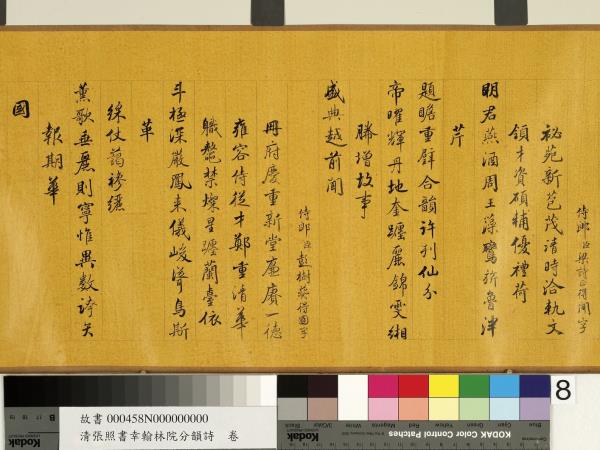 侍郎臣梁詩正得聞字
祕苑新苞茂清時洽軌文
領才資碩輔優禮荷
明君燕酒周王藻鸞旂魯泮
芹
題瞻重璧合韻許列仙分
帝曜輝丹地奎躔麗錦雯緗
縢增故事
盛典越前聞
侍郎臣彭樹葵得國字
冊府慶重新堂廉賡一德
雍容侍從才鄭重清華
職鼇禁燦星躔蘭臺依
斗極深嚴鳳來儀峻聳鳥斯
革
綵仗藹襂纚
薰歌無麗則寧惟異數誇矢
報期華
國
8
故書 000458N000000000
清張照書幸翰林院分韻詩 卷
Kodak
KODAK Color Control Patches
Blue
Cyan
Green
Yellow
Red
Magenta
White
3/Color
Black